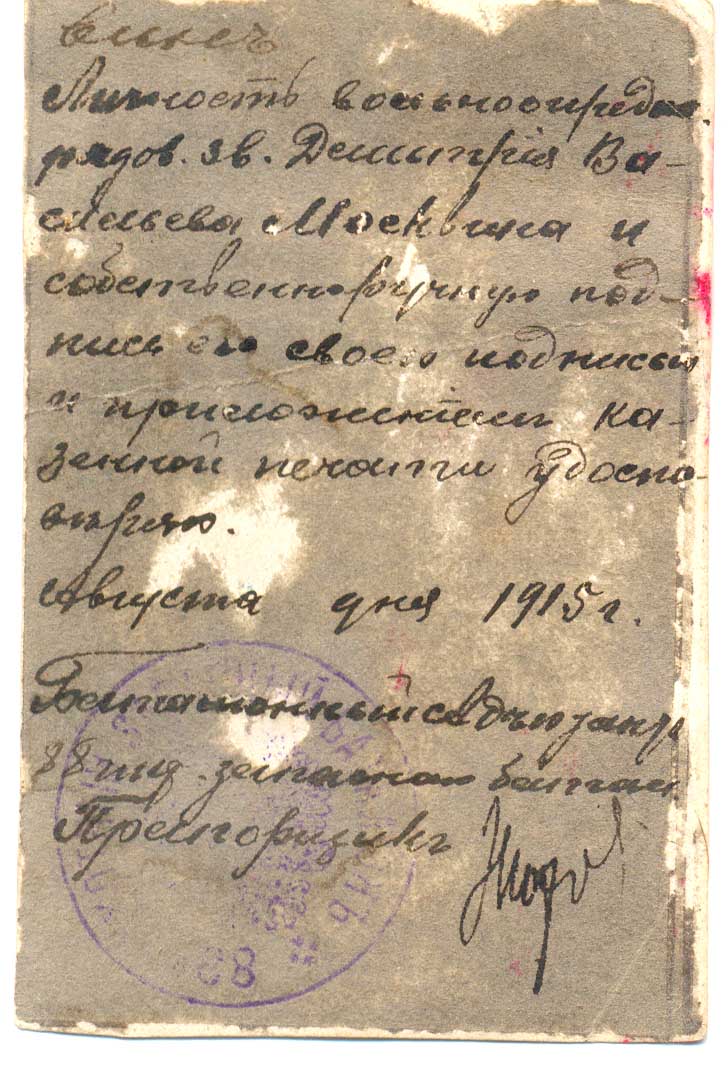 Личность вольноопредѣ.
рядов. зв. Димитрія Ва-
сильева Москвина и
собственноручную под-
пись его своею подписью
и приложеніемъ ка-
зенной печати удосто-
вѣряю.
Августа дня 1915 г.
Баталіонный адъютантъ
88 пѣш. запасного баталі
Прапорщикъ
88